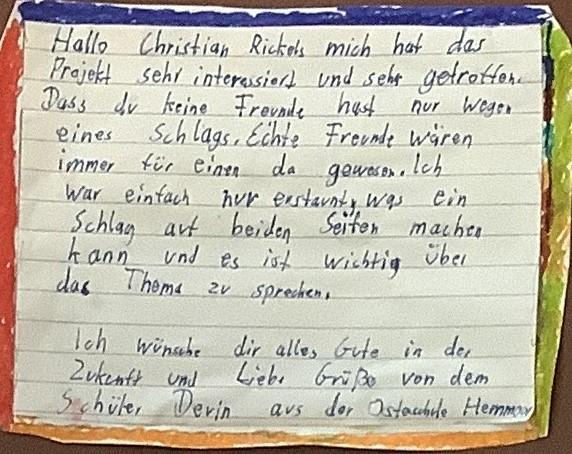 Hallo Christian Rickels mich hat das
Projekt sehr interessiert und sehr getroffen.
Dass du keine Freunde hast nur wegen
eines Schlags. Echte Freunde wären
immer für einen da gewesen. Ich
war einfach nur erstaunt, was ein
Schlag auf beiden Seiten machen
kann und es ist wichtig über
das Thema zu sprechen.
Ich wünsche dir alles Gute in der
Zukunft und Liebe Grüße von dem
Schüler Devin aus der Osteschule Hemmoor